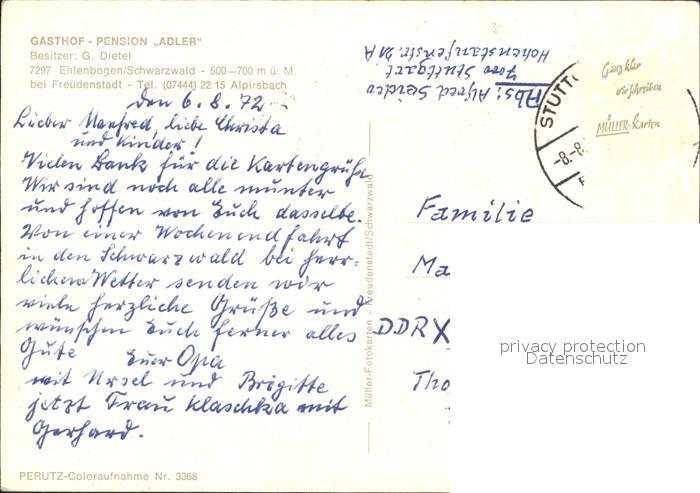 GASTHOF - PENSION „ADLER"
Besitzer: G. Dietel
7297 Ehlenbogen/Schwarzwald - 500—700 m ü. M.
bei Freudenstadt - Tel. (07444) 22 15 Alpirsbach
den 6. 8. 72
Lieber Manfred, liebe Christa
und Kinder!
Vielen Dank für die Kartengrüße
Wir sind noch alle munter
und hoffen von Euch dasselbe.
Von einer Wochenendfahrt
in den Schwarzwald bei herr-
lichem Wetter senden wir
viele herzliche Grüße und
wünschen Euch ferner alles
Gute Euer Opa
mit Ursel und Brigitte
jetzt Frau Klaschka mit
Gerhard.
PERUTZ-Coloraufnahme Nr. 3368
Müller-Fotokarten - Freudenstadt/Schwarzwald
Abs: Alfred
7000 Stuttgart
Hohenstaufenstr. 21 A
STUTT
-8.-8.
Ganz klar
wir schreiben
MÜLLER-Karten
Familie
Ma
DDR X
Tho
privacy protection
Datenschutz